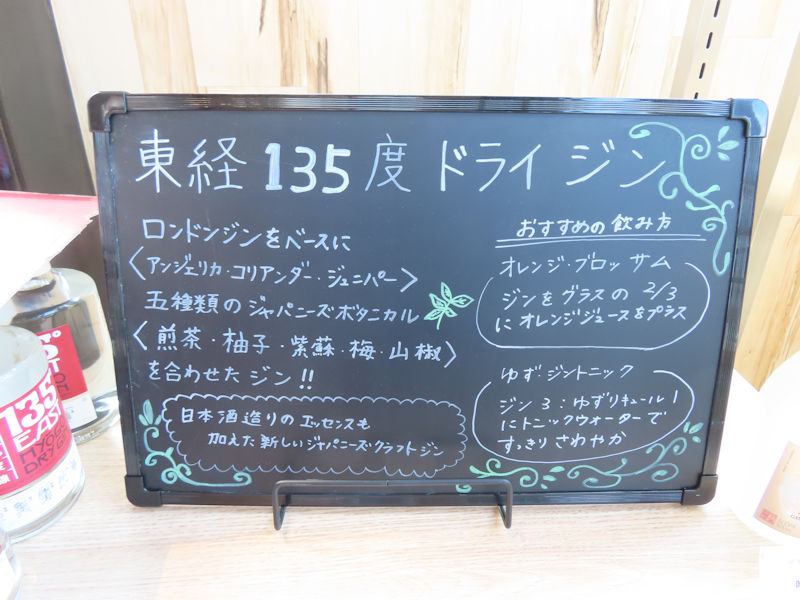 東経135度 ドライ ジン
ロンドンジンをベースに
〈アンジェリカ・コリアンダー・ジュニパー〉
五種類のジャパニーズボタニカル
〈煎茶・柚子・紫蘇・梅・山椒〉
を合わせた ジン!!
日本酒造りのエッセンスも
加えた新しいジャパニーズクラフトジン
おすすめの飲み方
オレンジ・ブロッサム
ジンをグラスの 2/3
にオレンジジュースをプラス
ゆず・ジントニック
ジン3:ゆずリキュール1
にトニックウォーターで
すっきりさわやか
135°
EAST
HYOGO
DRY GIN